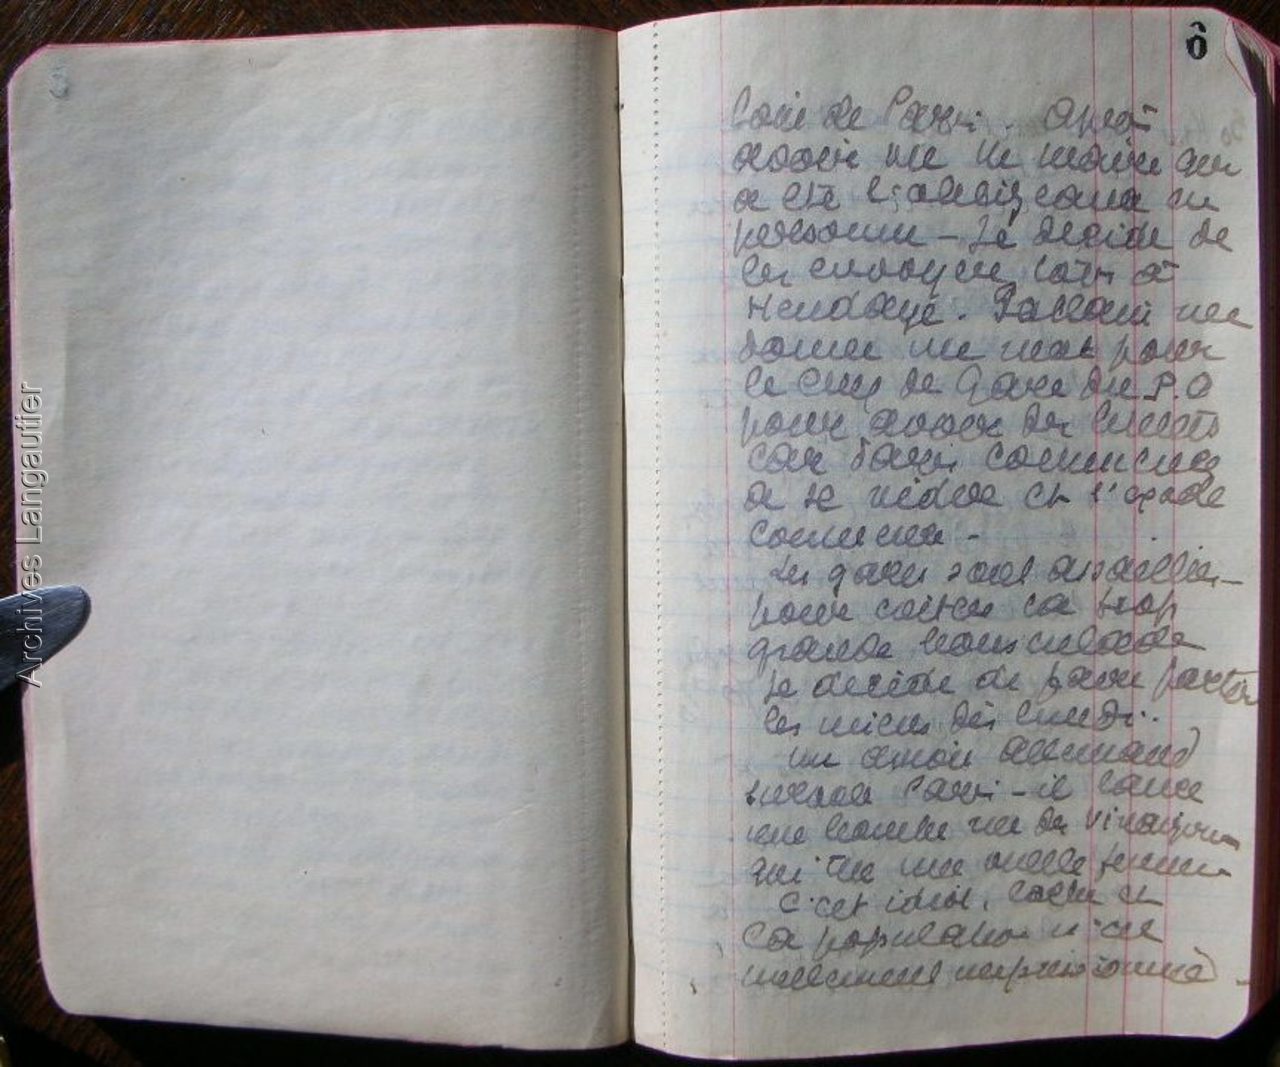 6
loin de Paris. Après
avoir vu le maire qui
a été
personne – Je décide de
les envoyer tous à
Hendaye. va me
donner un mot pour
le chef de Gare du P.O
pour avoir des billets
car Paris commence
à se vider et l'exode
commence –
Les gares sont assaillies –
pour éviter la trop
grande bousculade
je décide de faire partir
les miens dès lundi..
un avion allemand
survole Paris – il lance
une bombe rue des Vinaigriers
qui tue une vieille femme
C'est idiot, lâche et
la population n'est
nullement impressionnée –
Archives Langautier